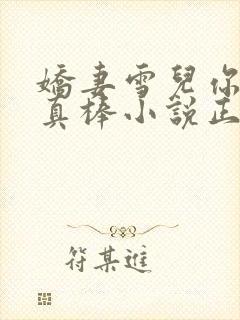 嬌妻雪兒你
真棒小說正
符某進